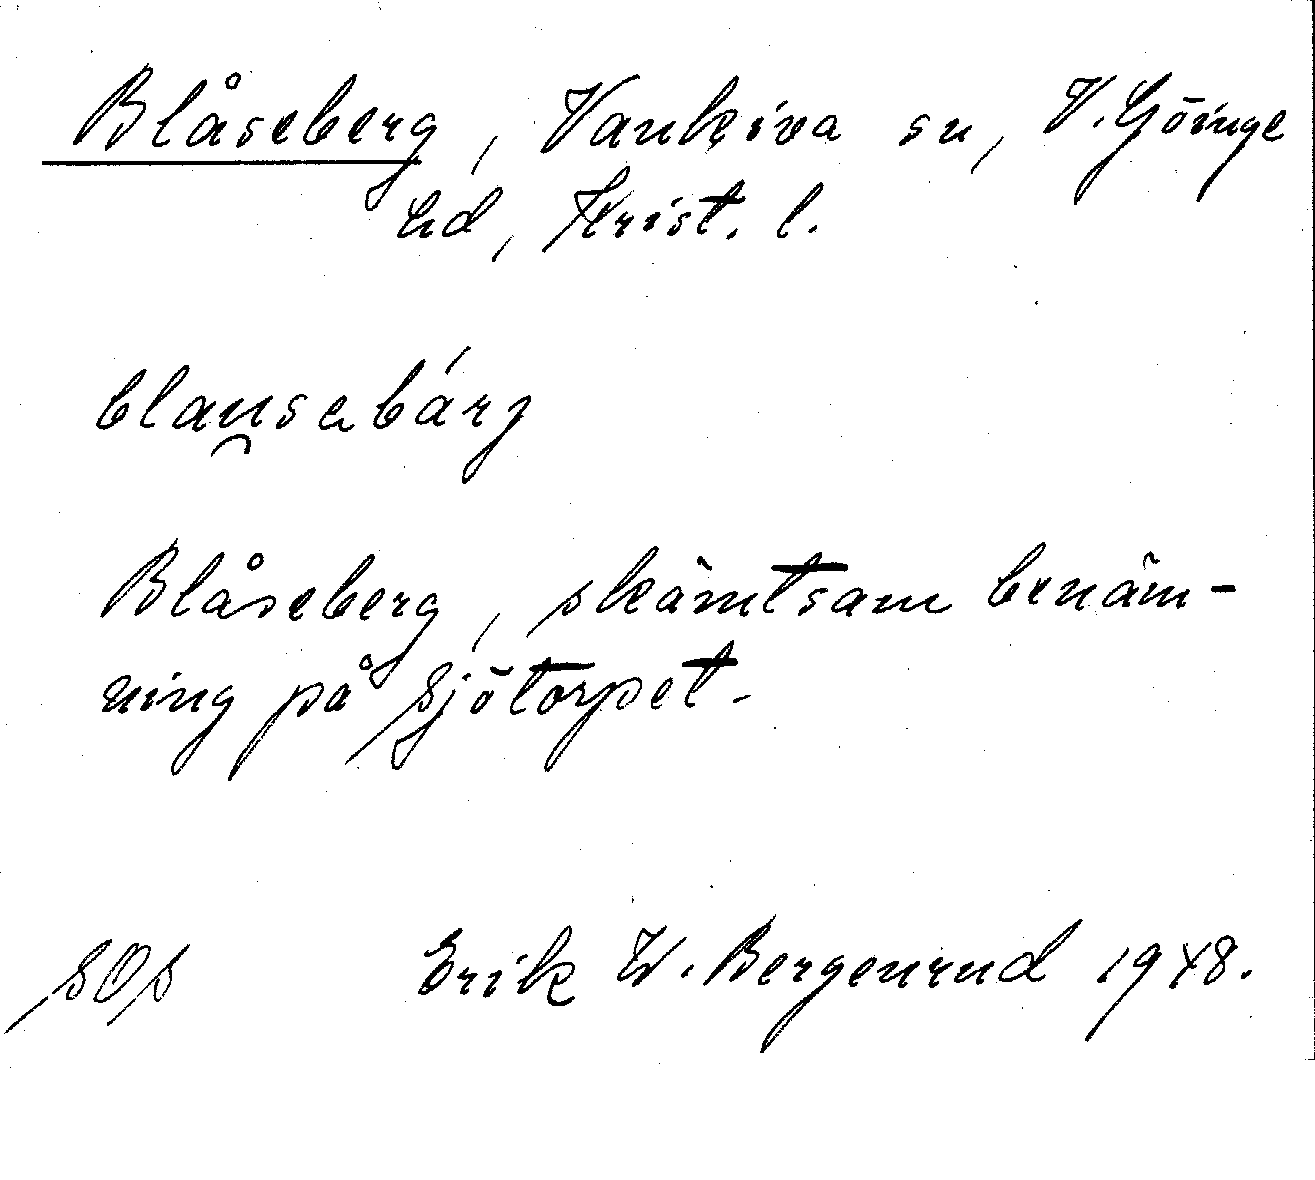 Blåseberg, Vankiva sn, V. Göinge
hd, Krist. l.
blau̯sabárj
Blåseberg, skämtsam benäm-
ning på Sjötorpet.
SOS Erik W. Bergenrud 1948.